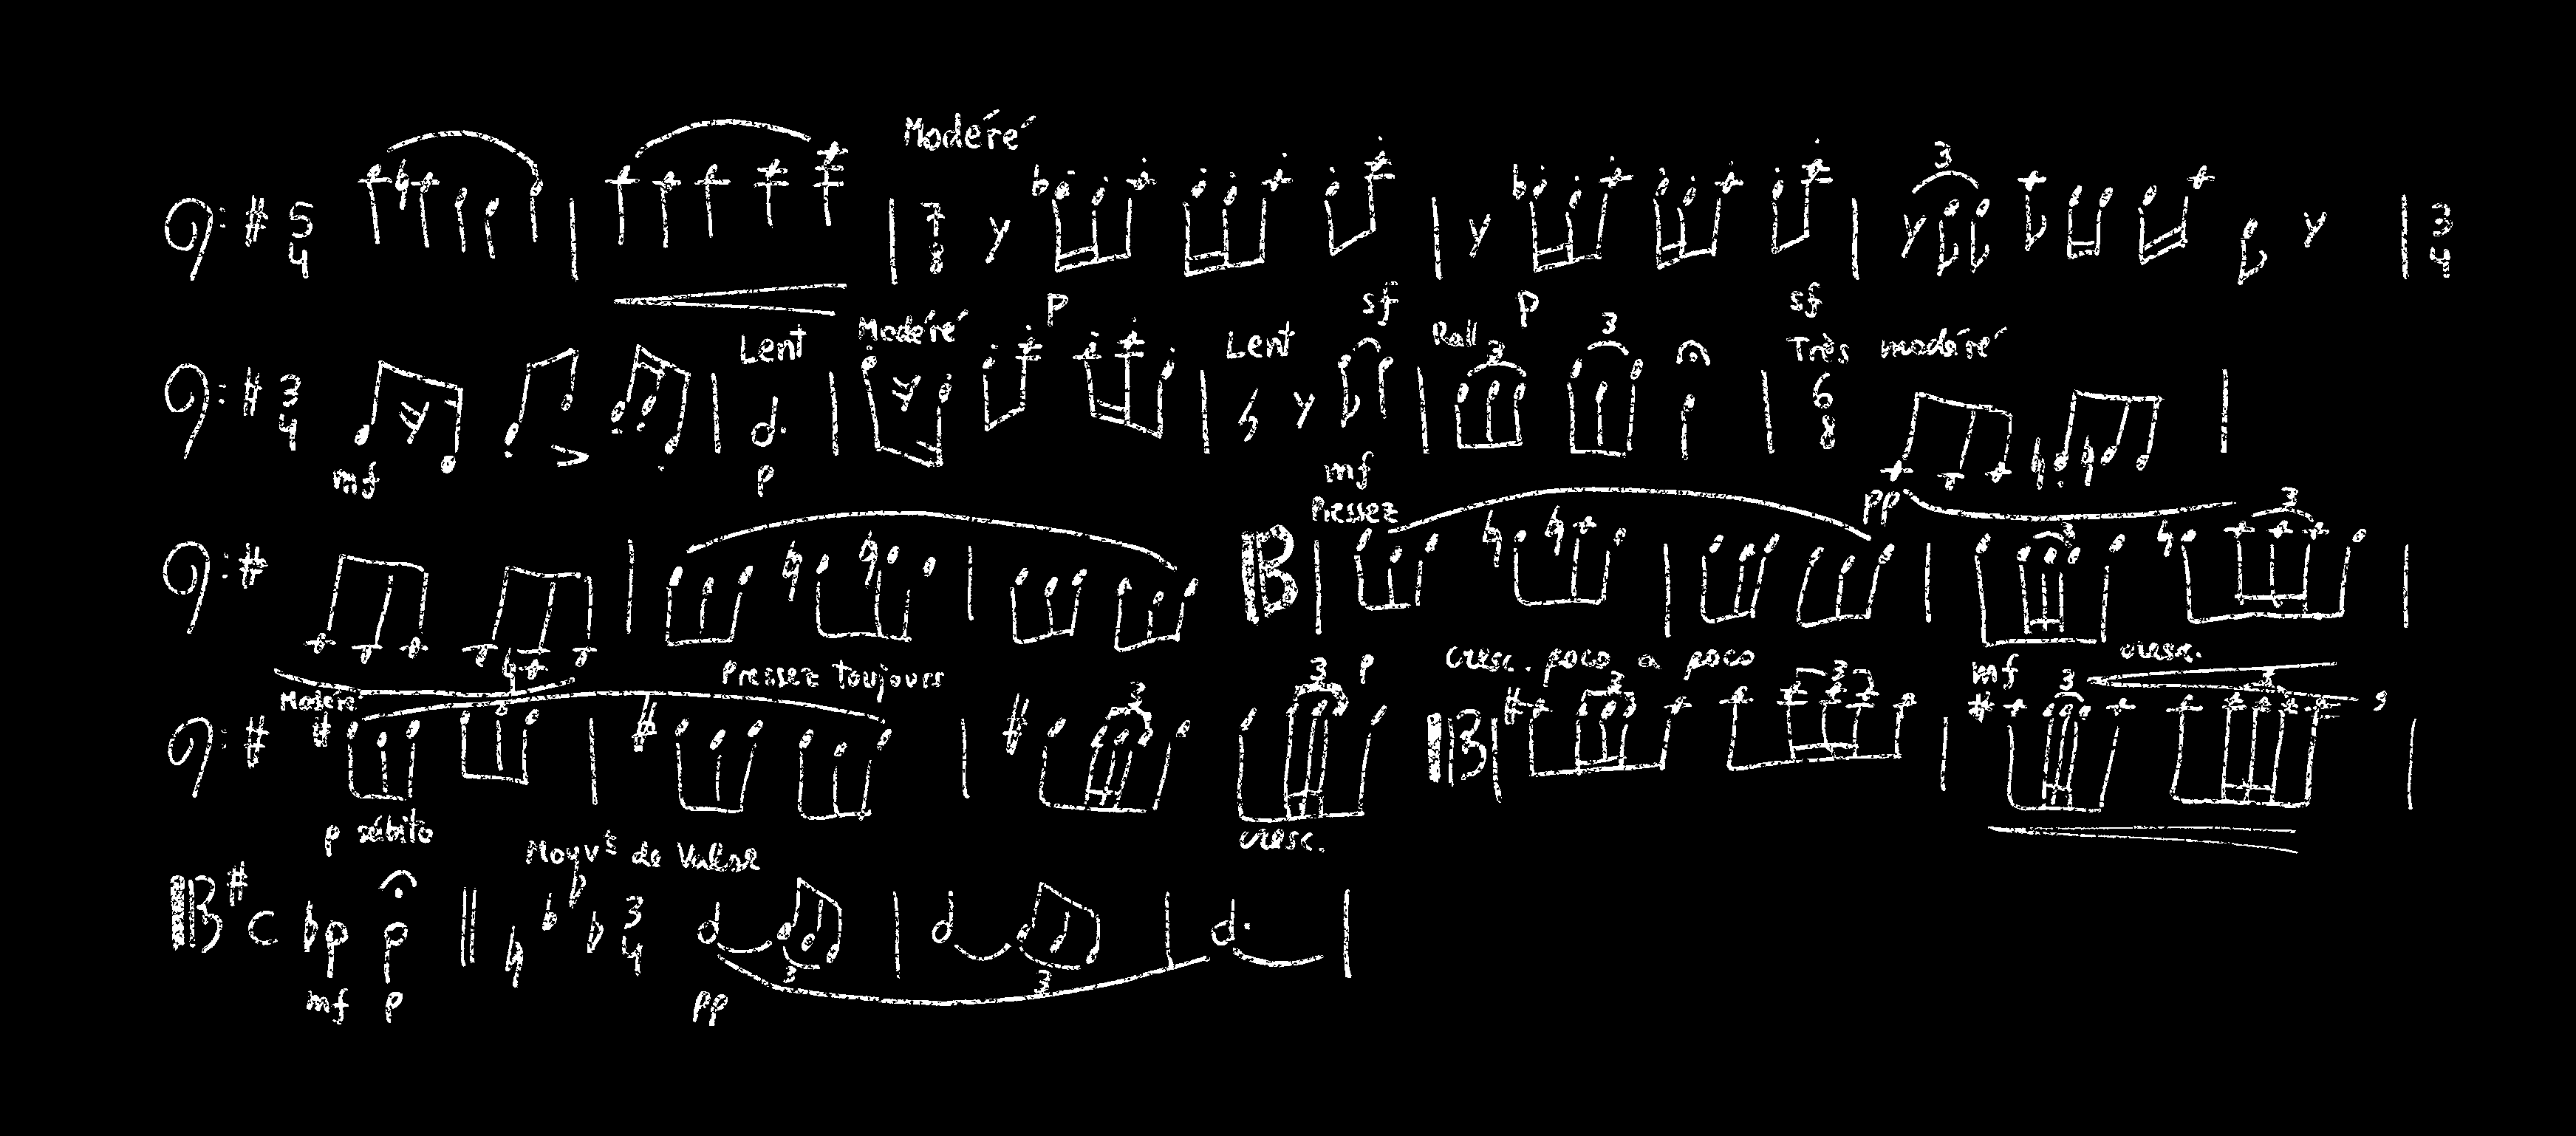 5 4 Modéré 7 8 3 3 4
p sf p sf
3 4 Lent Modéré Lent Rall 3 3 Très modéré 6 8
mf p mf pp
Pressez 3 3
Pressez toujours p cresc. poco a poco mf cresc.
Modéré 3 3 3 3 3 3
p súbito cresc.
Mouvt de Valse
C 3 4 3 3
mf p pp